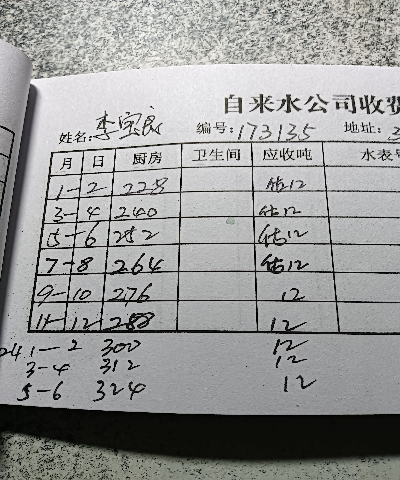 自来水公司收费
姓名: 李宝良 编号: 173135 地址: 3
月 日 厨房 卫生间 应收吨 水表
1-2 228 估12
3-4 240 估12
5-6 252 估12
7-8 264 估12
9-10 276 12
11-12 288 12
24 1-2 300 12
3-4 312 12
5-6 324 12